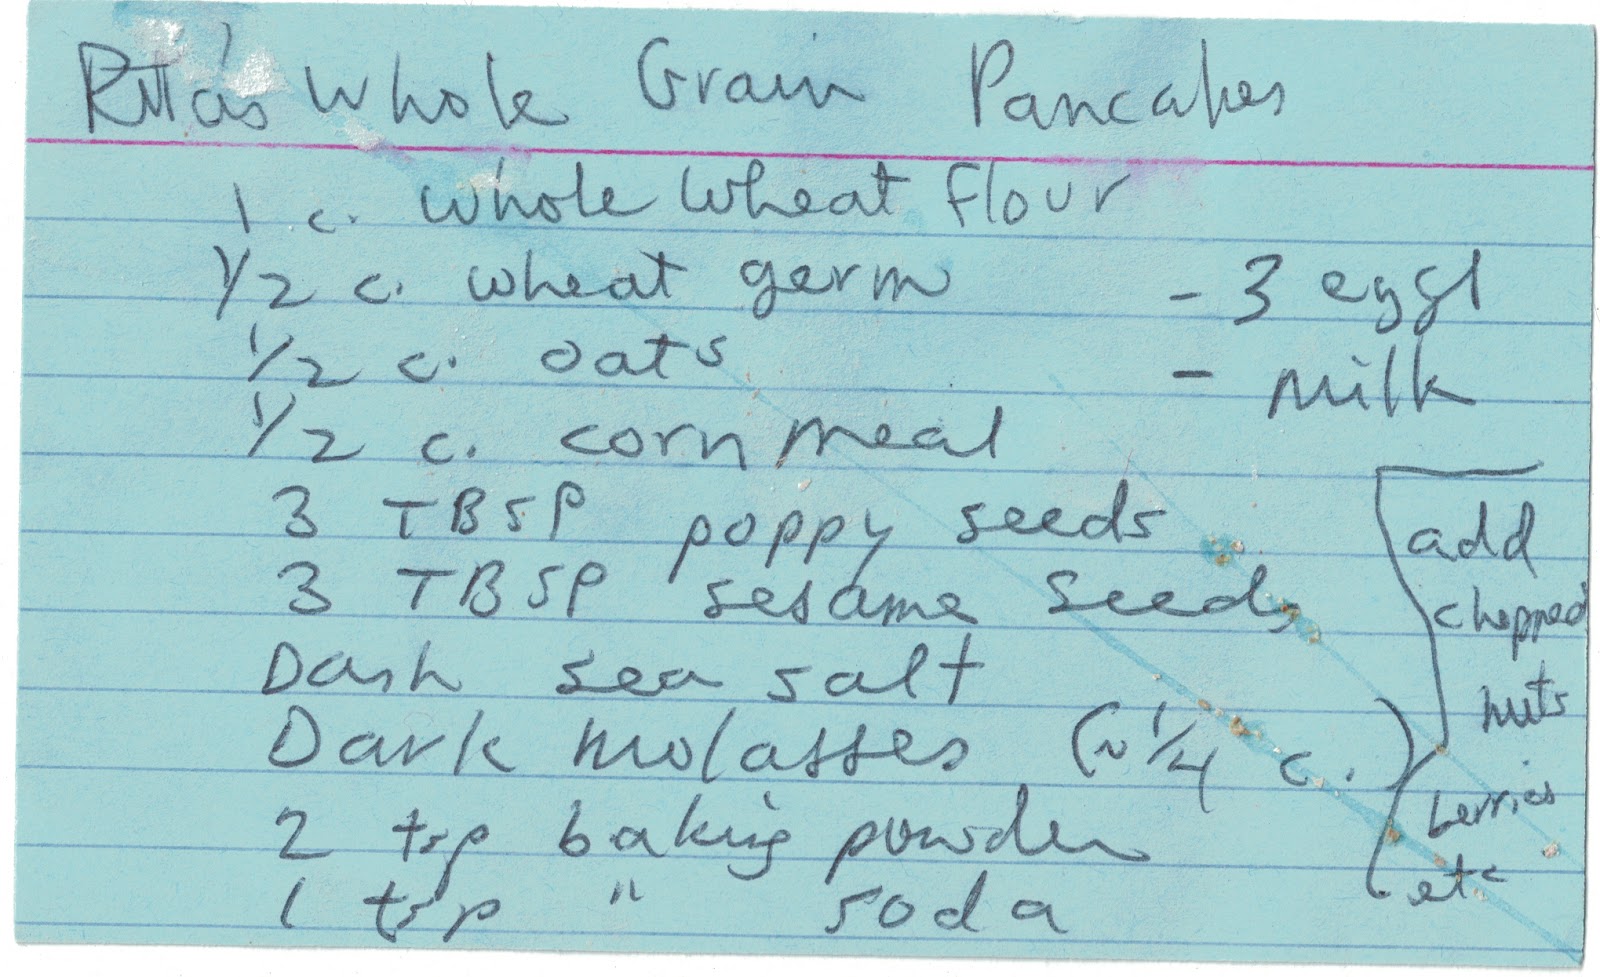 Ritta's Whole Grain Pancakes
1 c. whole wheat flour
1/2 c. wheat germ
1/2 c. oats
1/2 c. corn meal
3 TBSP poppy seeds
3 TBSP sesame seeds
Dash sea salt
Dark molasses (~ 1/4 c.)
2 tsp baking powder
1 tsp " soda
- 3 eggs
- milk
add
chopped
nuts
berries
etc